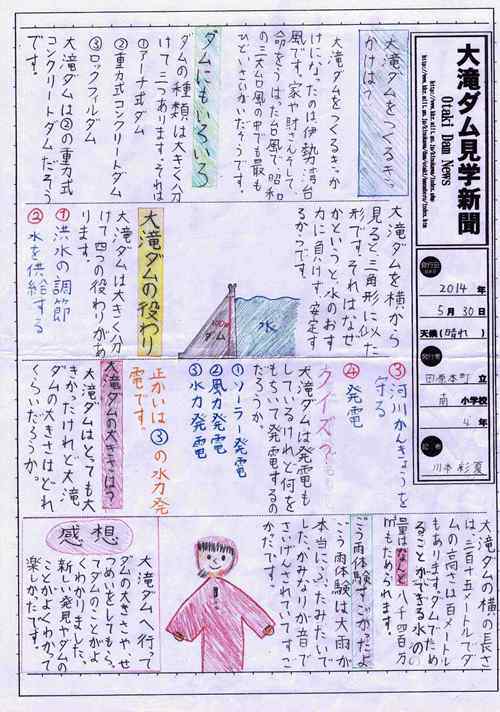 大滝ダム見学新聞
Otaki Dam News
発行日
2014年
5月30日
天候(晴れ)
発行者
田原本町立
南小学校
4年
記者
川本彩夏
大滝ダムをつくるきっ
かけは?
大滝ダムをつくるきっか
けになったのは伊勢湾台
風です。家や財さんそして、
命をうばった台風で、昭和
の三大台風の中でも最も
ひどいさいがいだそうです。
ダムにもいろいろ
ダムの種類は大きく分
けて三つあります。それは
①アーチ式ダム
②重力式コンクリートダム
③ロックフィルダム
大滝ダムは②の重力式
コンクリートダムだそう
です。
大滝ダムを横から
見ると三角形に似た
形です。それはなぜ
かというと、水のおす
力に負けず、安定す
るからです。
水
ダム
大滝ダムの役わり
大滝ダムは大きく分
けて四つの役わりがあ
ります。
①洪水の調節
②水を供給する
③河川かんきょうを
守る
④発電
クイズ?
大滝ダムは発電も
しているけれど何を
もちいて発電するの
だろうか。
①ソーラー発電
②風力発電
③水力発電
正かいは③の水力発
電です。
大滝ダムの大きさは?
大滝ダムはとっても大
きかったけれど大滝
ダムの大きさはどれ
くらいだろうか。
大滝ダムの横の長さ
は三百十五メートルでダ
ムの高さは百メートル
もあります。ダムでため
ることができる水の
量はなんと八千四百万
m³もためられます。
ごう雨体験すごかったよ
ごう雨体験は大雨が
本当にふったみたいで
した。かみなりが音で
さいげんされていてすご
かったです。
感想
大滝ダムへ行って
ダムの大きさやせ
つめいをしてもらっ
てダムのことがよ
くわかりました。
新しい発見やダムの
ことがよくわかって
楽しかったです。